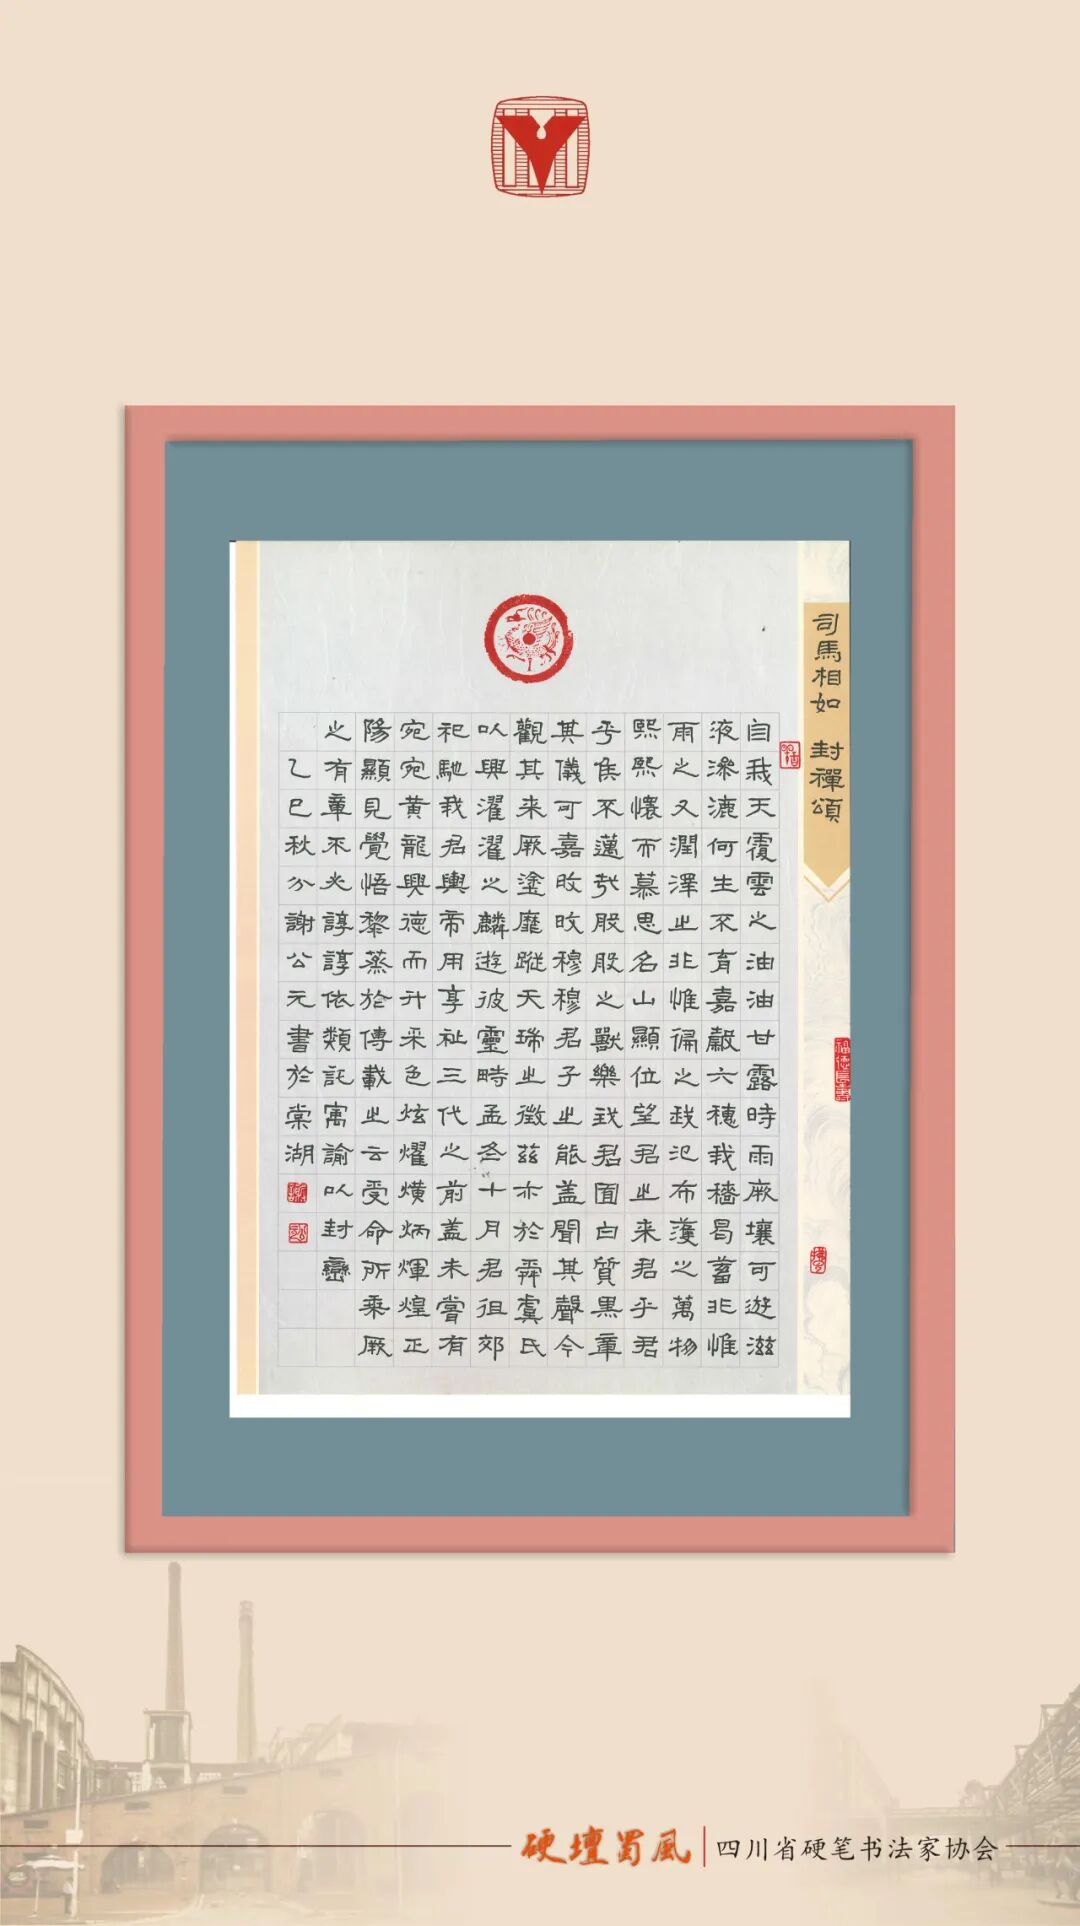 司馬相如 封禪頌
自我天覆雲之油油甘露時雨厥壤可遊滋
液滲漉何生不育嘉穀六穗我穡曷蓄非惟
雨之又潤澤之非惟偏之我氾布濩之萬物
熙熙懷而慕思名山顯位望君之來君乎君
乎侯不邁哉般般之獸樂我君囿白質黑章
其儀可嘉旼旼穆穆君子之能蓋聞其聲今
觀其來厥塗靡蹤天瑞之徵茲亦於舜虞氏
以興濯濯之麟遊彼靈畤孟冬十月君徂郊
祀馳我君輿帝用享祉三代之前蓋未嘗有
宛宛黄龍興德而升采色炫燿熿炳煇煌正
陽顯見覺悟黎蒸於傳載之云受命所乘厥
之有章不必諄諄依類託寓諭以封巒
乙巳秋分謝公元書於棠湖
福德長壽
硬壇蜀風
四川省硬笔书法家协会